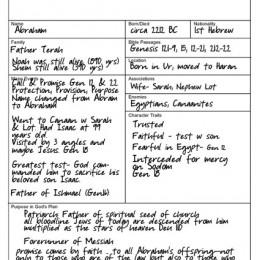 Name
Abraham
Born/Died
circa 2212 BC
Nationality
1st Hebrew
Family
Father Terah
Noah was still alive (890 yrs)
Shem still alive (390 yrs)
Bible Passages
Genesis 12:1-9, 15, 12-21, 21:2-22
Location
Born in Ur, moved to Haran
Main Events
Call & Promise Gen 12 & 22
Protection, Provision, Purpose
Name changed from Abram
to Abraham
Went to Canaan w Sarah
& Lot Had Isaac at 99
years old
Visited by 3 angles and
maybe Jesus Gen 18
Greatest test- God com-
manded him to sacrifice his
beloved son Isaac.
Father of Ishmael (Gen16)
Associations
Wife- Sarah, Nephew Lot
Enemies
Egyptians, Canaanites
Character Traits
Trusted
Faithful - test w son
Fearful in Egypt- Gen 12
Interceded for mercy
on Sodom
Gen 18
Purpose in God's Plan
Patriarch Father of spiritual seed of church
all bloodline Jews of today are descended from him
multiplied as the stars of heaven Deu 1:10
Forerunner of Messiah
promise comes by faith ...to all Abraham's offspring-not
only to those who are of the law but also to those who